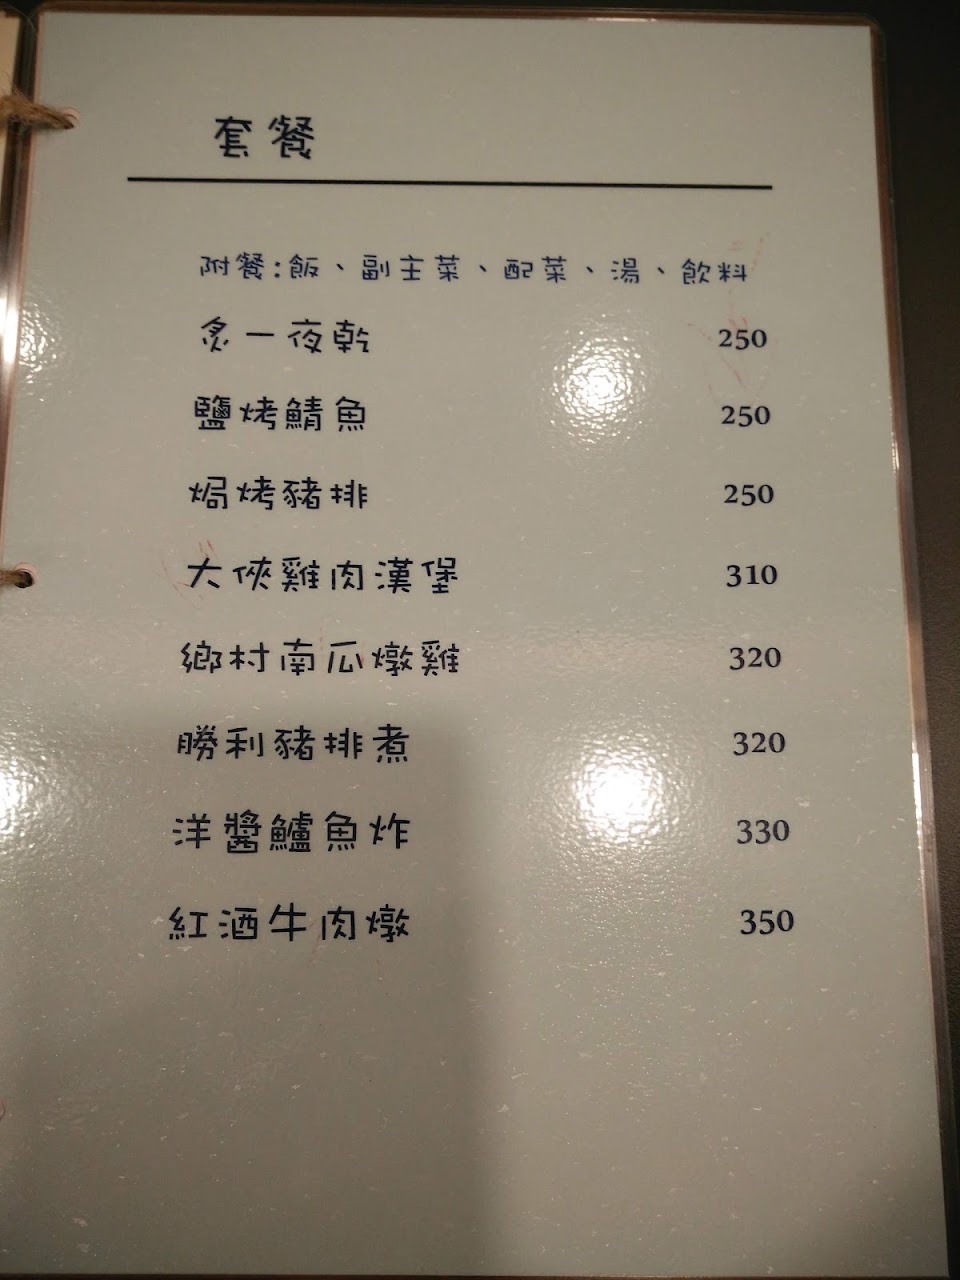 套餐
附餐:飯、副主菜、配菜、湯、飲料
炙一夜乾 250
鹽烤鯖魚 250
焗烤豬排 250
大俠雞肉漢堡 310
鄉村南瓜燉雞 320
勝利豬排煮 320
洋醬鱸魚炸 330
紅酒牛肉燉 350